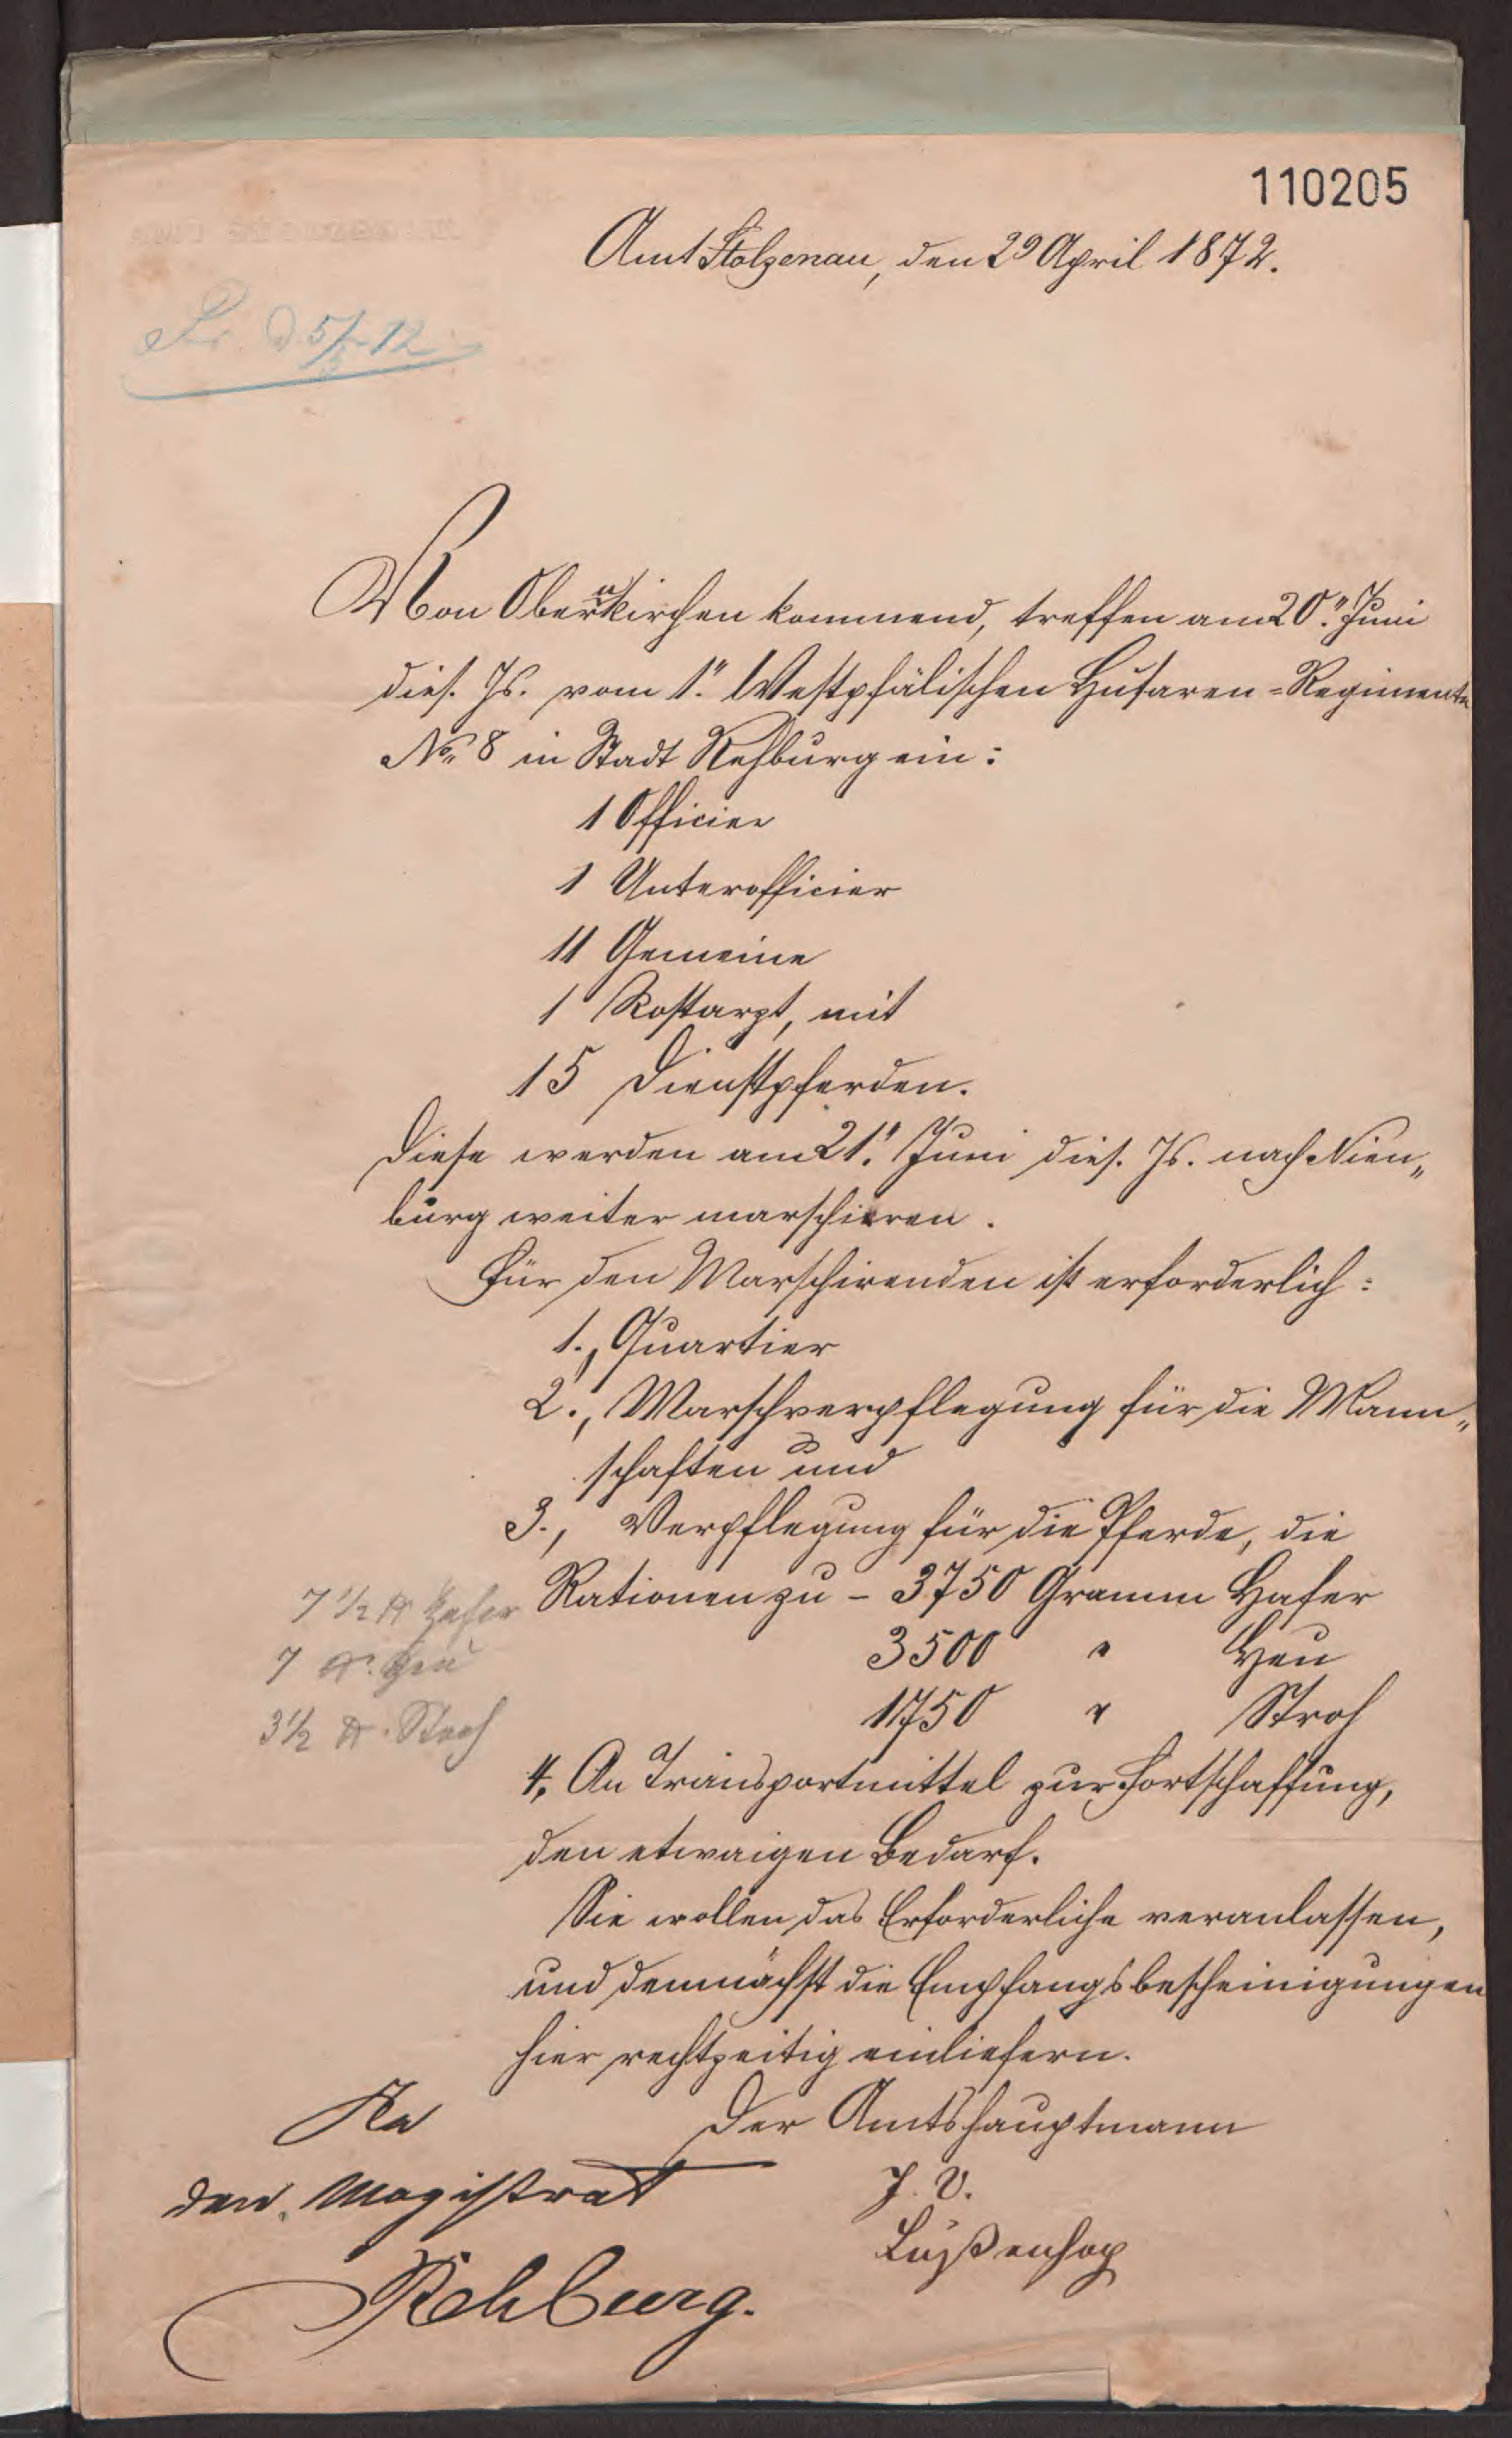 110205
Amt Stolzenau, den 29 April 1872.
Pr. d. 5/5 72
Von Obernkirchen kommend, treffen am 20.ten Juni
dies. Js. vom 1.ten Westphälischen Husaren-Regimente
No. 8 in Stadt Rehburg ein:
1 Officier
1 Unterofficier
11 Gemeine
1 Roßarzt, mit
15 Dienstpferden.
Diese werden am 21.ten Juni dies. Js. nach Nien„
burg weiter marschieren.
Für den Marschirenden ist erforderlich:
1., Quartier
2., Marschverpflegung für die Mann„
schaften und
3., Verpflegung für die Pferde, die
Rationen zu - 3750 Gramm Hafer
7 1/2 ℔ Hafer
3500 " Heu
7 ℔. Heu
1750 " Stroh
3 1/2 ℔. Stroh
4. An Transportmittel zur Fortschaffung,
den etwaigen Bedarf.
Sie wollen das Erforderliche veranlassen,
und demnächst die Empfangsbescheinigungen
hier rechtzeitig einliefern.
An
Der Amtshauptmann
den Magistrat
J. V.
Rehburg.